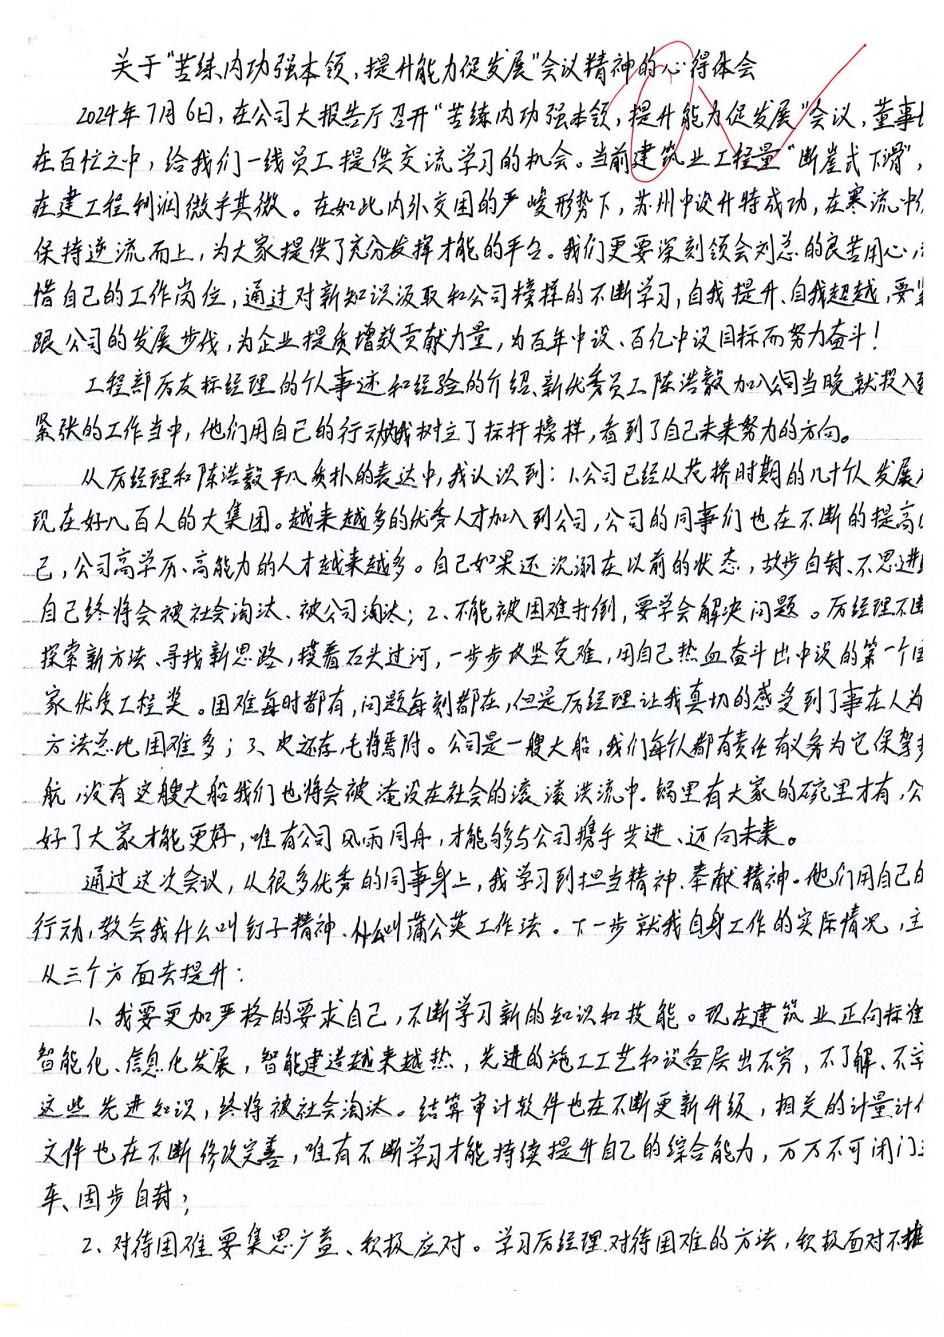 关于“苦练内功强本领,提升能力促发展”会议精神的心得体会
2024年7月6日,在公司大报告厅召开“苦练内功强本领,提升能力促发展”会议,董事
在百忙之中,给我们一线员工提供交流学习的机会。当前建筑业工程量“断崖式下滑”,
在建工程利润微乎其微。在如此内外交困的严峻形势下,苏州中设升特成功,在寒流中
保持逆流而上,为大家提供了充分发挥才能的平台。我们更要深刻领会刘总的良苦用心,
惜自己的工作岗位,通过对新知识汲取和公司榜样的不断学习,自我提升、自我超越,要
跟公司的发展步伐,为企业提质增效贡献力量,为百年中设、百亿中设目标而努力奋斗!
工程部厉友标经理的个人事迹和经验的介绍、新优秀员工陈浩毅加入公司当晚就投入到
紧张的工作当中,他们用自己的行动给我树立了标杆榜样,看到了自己未来努力的方向。
从厉经理和陈浩毅平凡质朴的表达中,我认识到:1、公司已经从花桥时期的几十个人发展
现在好几百人的大集团。越来越多的优秀人才加入到公司,公司的同事们也在不断的提高
己,公司高学历、高能力的人才越来越多。自己如果还沉溺在以前的状态,故步自封、不思进
自己终将会被社会淘汰、被公司淘汰;2、不能被困难打倒,要学会解决问题。厉经理不
探索新方法、寻找新思路,摸着石头过河,一步步攻坚克难,用自己热血奋斗出中设的第一个国
家优质工程奖。困难每时都有,问题每刻都在,但是厉经理让我真切的感受到了事在人为
方法总比困难多;3、皮之不存,毛将焉附。公司是一艘大船,我们每个人都有责任有义务为它保驾
航,没有这艘大船我们也将会被淹没在社会的滚滚洪流中。锅里有大家的碗里才有,公
好了大家才能更好,唯有公司风雨同舟,才能够与公司携手共进、迈向未来。
通过这次会议,从很多优秀的同事身上,我学习到担当精神、奉献精神。他们用自己的
行动,教会我什么叫钉子精神、什么叫蒲公英工作法。下一步就我自身工作的实际情况,主
从三个方面去提升:
1、我要更加严格的要求自己,不断学习新的知识和技能。现在建筑业正向标准
智能化、信息化发展,智能建造越来越热,先进的施工工艺和设备层出不穷,不了解、不学
这些先进知识,终将被社会淘汰。结算审计软件也在不断更新升级,相关的计量计价
文件也在不断修改完善,唯有不断学习才能持续提升自己的综合能力,万万不可闭门
车、固步自封;
2、对待困难要集思广益、积极应对。学习厉经理对待困难的方法,积极面对不推